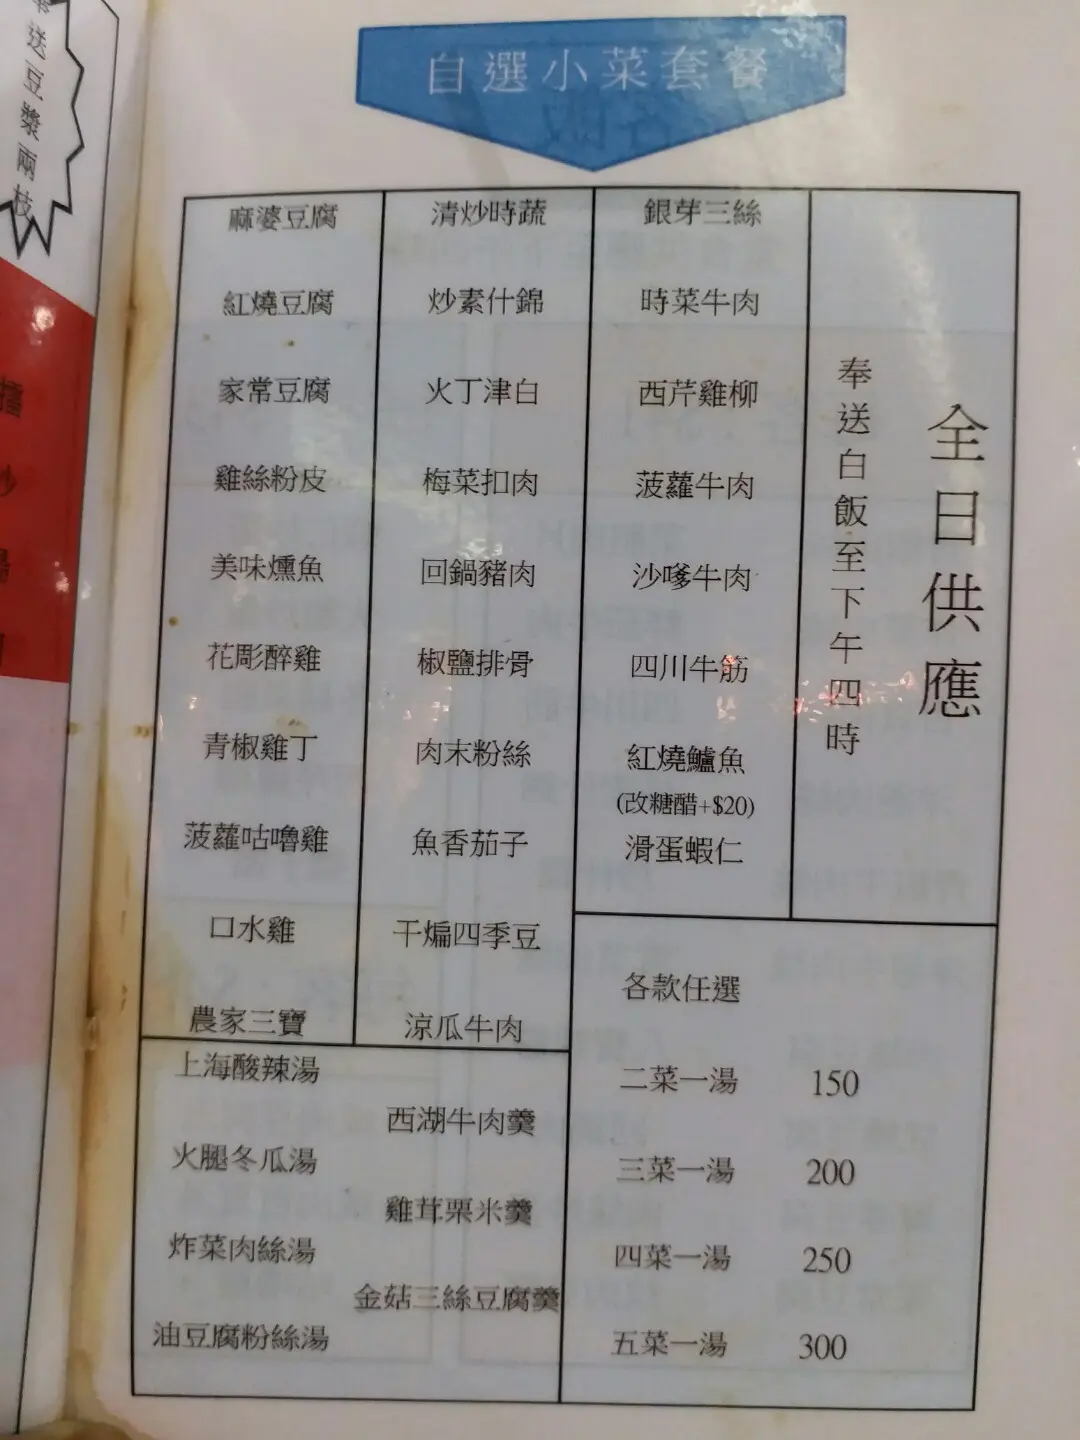 自選小菜套餐
麻婆豆腐
紅燒豆腐
家常豆腐
雞絲粉皮
美味燻魚
花彫醉雞
青椒雞丁
菠蘿咕嚕雞
口水雞
農家三寶
清炒時蔬
炒素什錦
火丁津白
梅菜扣肉
回鍋豬肉
椒鹽排骨
肉末粉絲
魚香茄子
干煸四季豆
涼瓜牛肉
銀芽三絲
時菜牛肉
西芹雞柳
菠蘿牛肉
沙嗲牛肉
四川牛筋
紅燒鱸魚
(改糖醋+$20)
滑蛋蝦仁
全日供應
奉送白飯至下午四時
上海酸辣湯
西湖牛肉羹
火腿冬瓜湯
雞茸栗米羹
炸菜肉絲湯
金菇三絲豆腐羹
油豆腐粉絲湯
各款任選
二菜一湯 150
三菜一湯 200
四菜一湯 250
五菜一湯 300
送豆漿兩枝